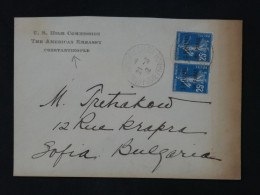 U. S. High Commission
The American Embassy
Constantinople
M. Tretrakow
12 Rue Krapra
Sofia Bulgaria
25
25